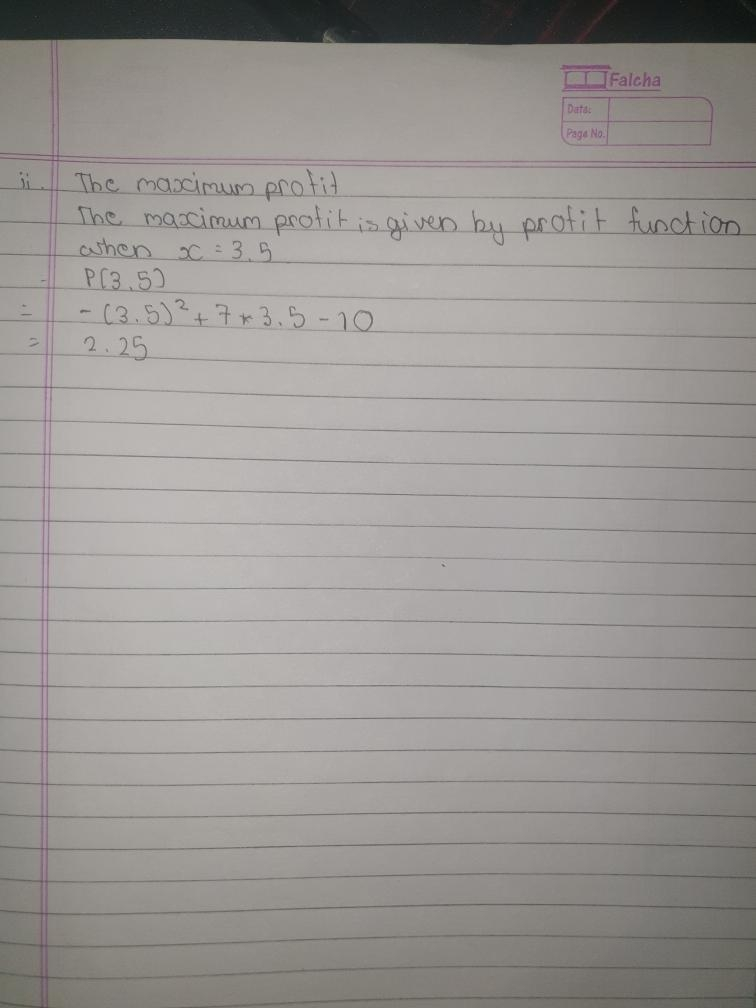 Falcha
Date:
Page No.
ii. The maximum profit
The maximum profit is given by profit function
when x = 3.5
P(3.5)
= -(3.5)² + 7 * 3.5 - 10
= 2.25